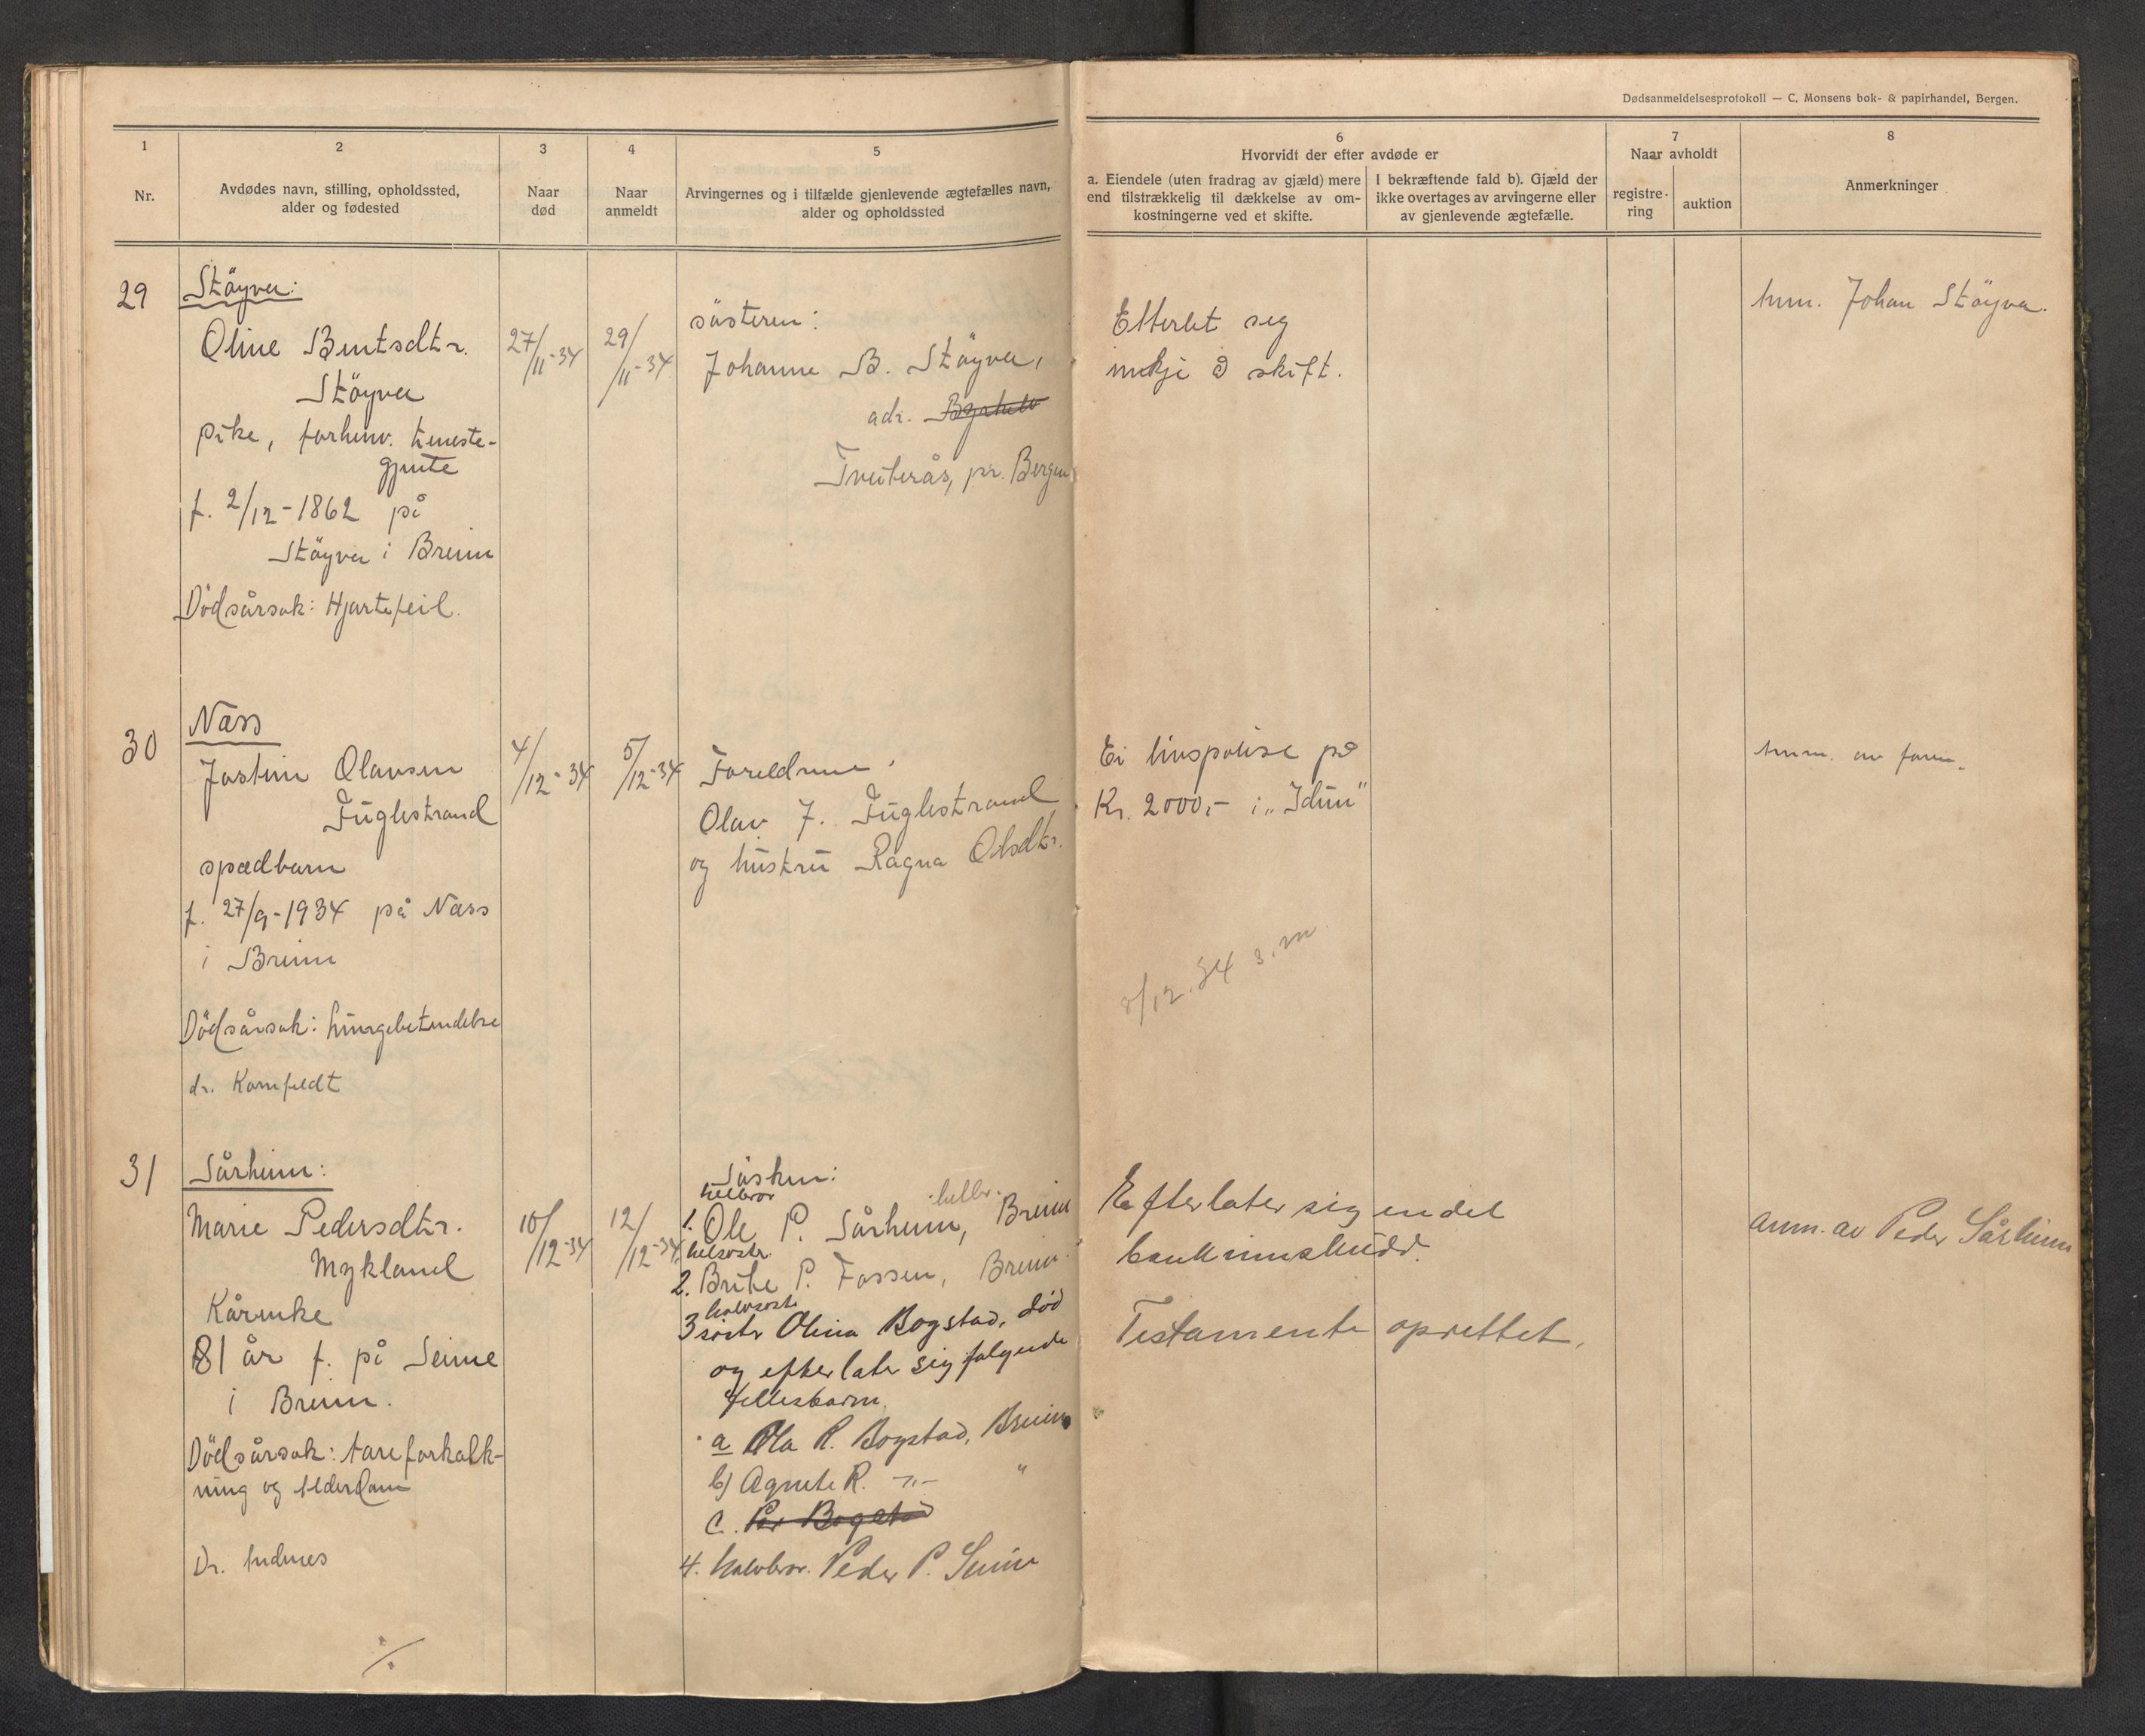 Dødsanmeldelsesprotokoll — C. Monsens bok- & papirhandel, Bergen.
1
Nr.
2
Avdødes navn, stilling, opholdssted,
alder og fødested
3
Naar
død
4
Naar
anmeldt
5
Arvingernes og i tilfælde gjenlevende ægtefælles navn,
alder og opholdssted
6
Hvorvidt der efter avdøde er
a. Eiendele (uten fradrag av gjæld) mere
end tilstrækkelig til dækkelse av om-
kostningerne ved et skifte.
I bekræftende fald b). Gjæld der
ikke overtages av arvingerne eller
av gjenlevende ægtefælle.
7
Naar avholdt
registre-
ring
auktion
8
Anmerkninger
29
Støyva:
Oline Bentsdtr.
Støyva
pike, forhenv. teneste-
gjente
f. 2/12-1862 på
Støyva i Breim
Dödsårsak: Hjartefeil.
27/11-34
29/11-34
søsteren:
Johanne B. Støyva,
adr. Byrkelo
Tveiterås, pr. Bergen
Etterlet seg
inkje å skift.
Johan Støyva.
30
Næss
Jostein Olavsen
Fuglestrand
spædbarn
f. 27/9-1934 på Næss
i Breim
Dödsårsak: lungebetendelse
dr. Kornfeldt
4/12-34
5/12-34
Foreldrene:
Olav J. Fuglestrand
og hustru Ragna Olsdtr.
Ei livspolise på
Kr. 2000,- i "Idun"
8/12.34
av faren.
31
Sårheim:
Marie Pedersdtr.
Mykland
Kårenke
81 år f. på Seime
i Breim.
Dödsårsak: åreforkalk-
ning og alderdom
Dr. Indrenes
10/12-34
12/12-34
Søsken:
helbror
1. Ole P. Sårheim, Breim
helsøster
2. Brite P. Fossen, Breim
halvsøster
3 søster Olina Bogstad, død
og efterlater sig følgende
fellesbarn
a Ola R. Bogstad, Breim
b) Agnete R. -"- "
c. Per Bogstad
4. halvbror. Peder P. Seim
Efterlater sig endel
bankinnskudd.
Testamente oprettet.
anm. av Peder Sårheim
./.